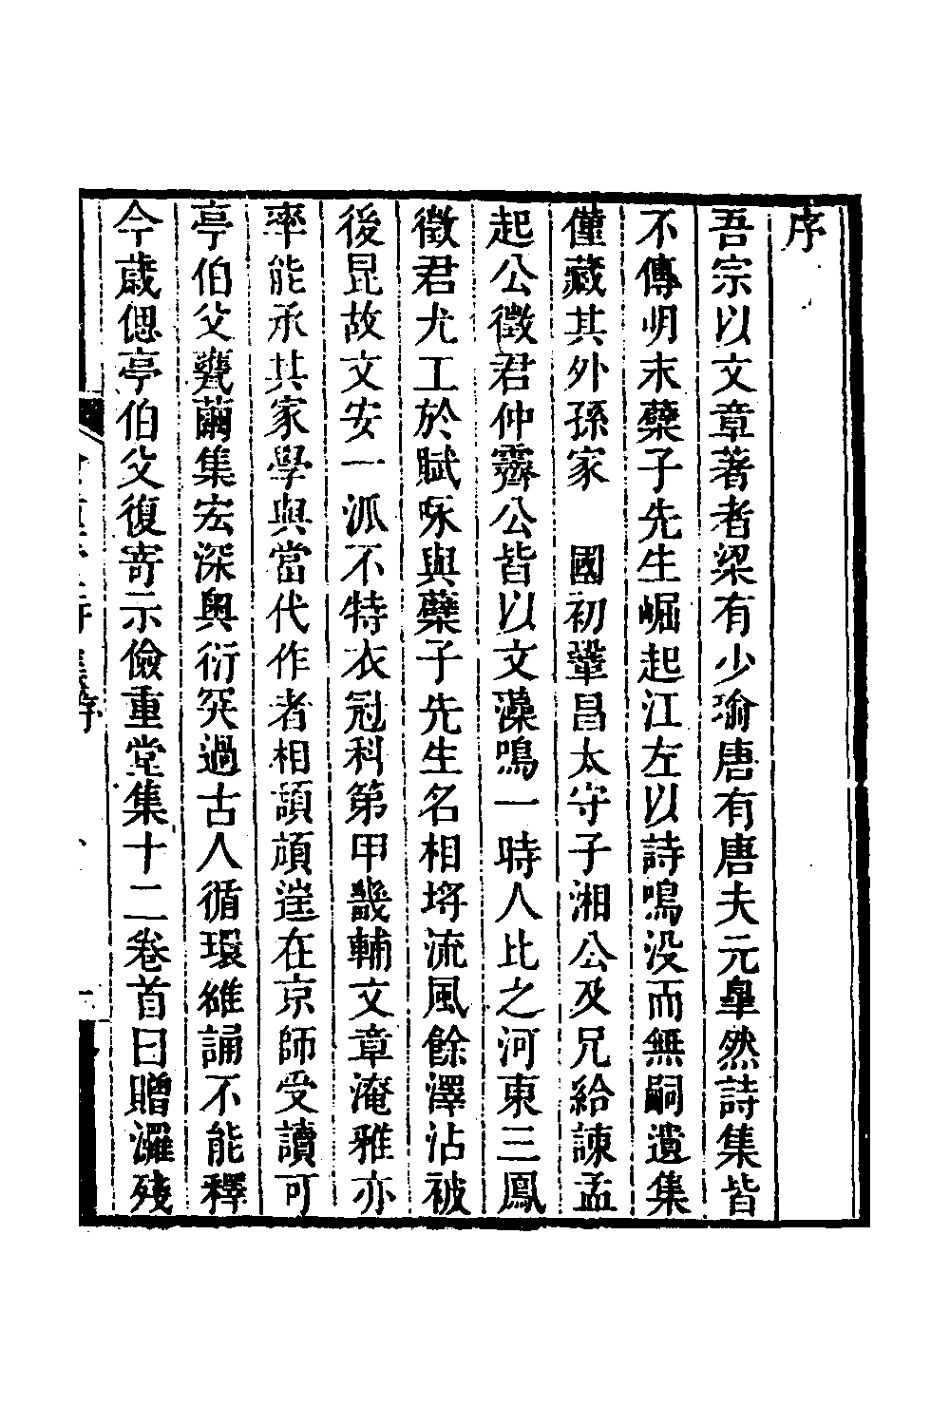 序
吾宗以文章著者梁有少瑜唐有唐夫元臯然詩集皆
不傳明末蘗子先生崛起江左以詩鳴没而無嗣遺集
僅藏其外孫家　國初鞏昌太守子湘公及兄給諫孟
起公徵君仲霽公皆以文藻鳴一時人比之河東三鳳
徵君尤工於賦系與蘗子先生名相埓流風餘澤沾被
後昆故文安一派不特衣冠科第甲畿輔文章淹雅亦
率能承其家學與當代作者相頡頏逵在京師受讀可
亭伯父甕繭集宏深奥衍突過古人循環雒誦不能釋
今歲偲亭伯父復寄示儉重堂集十二卷首曰贈灑殘